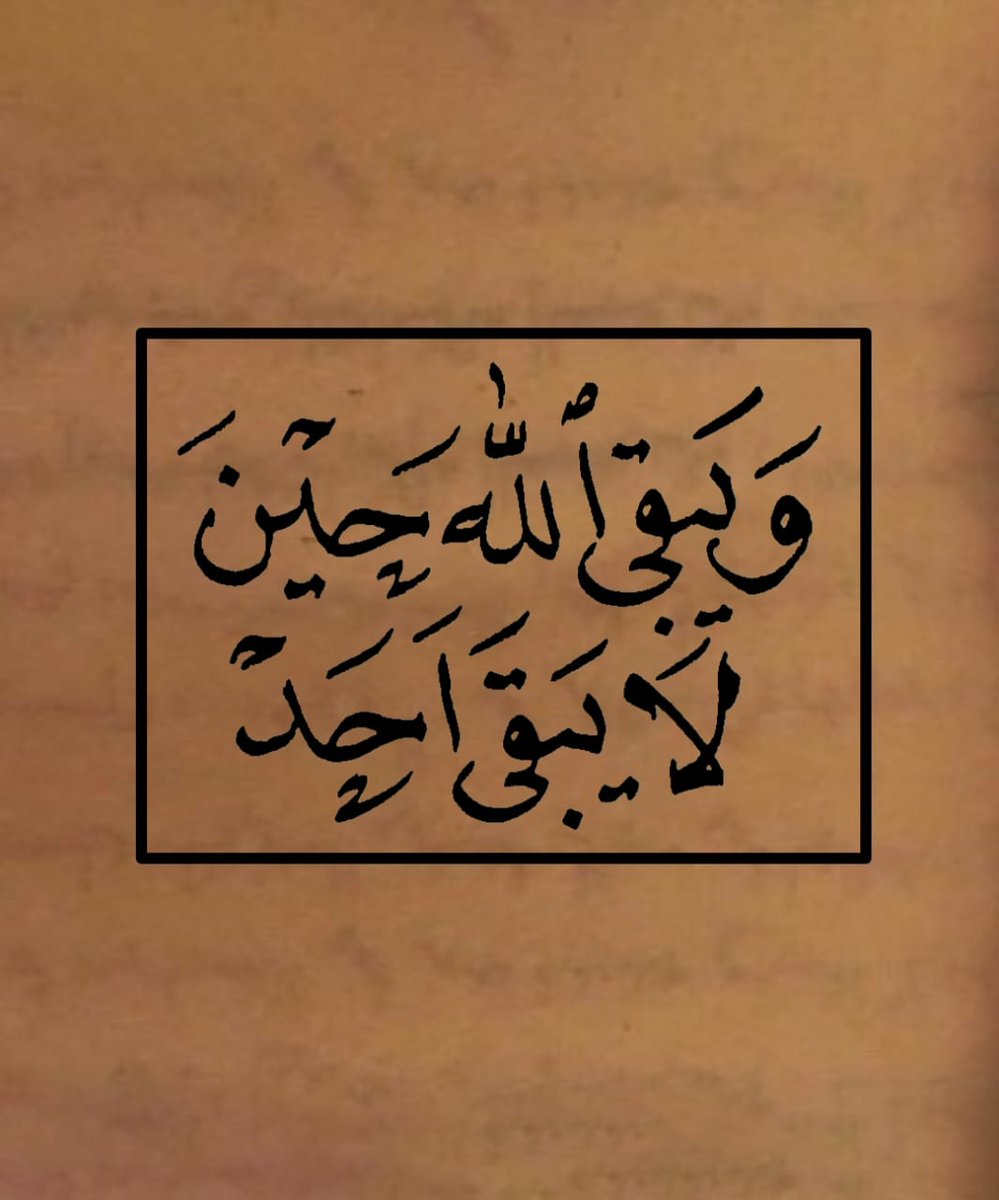 وَيَبقى ٱللّٰه حَيْنَ
لَا يَبقىَ اَحَدْ